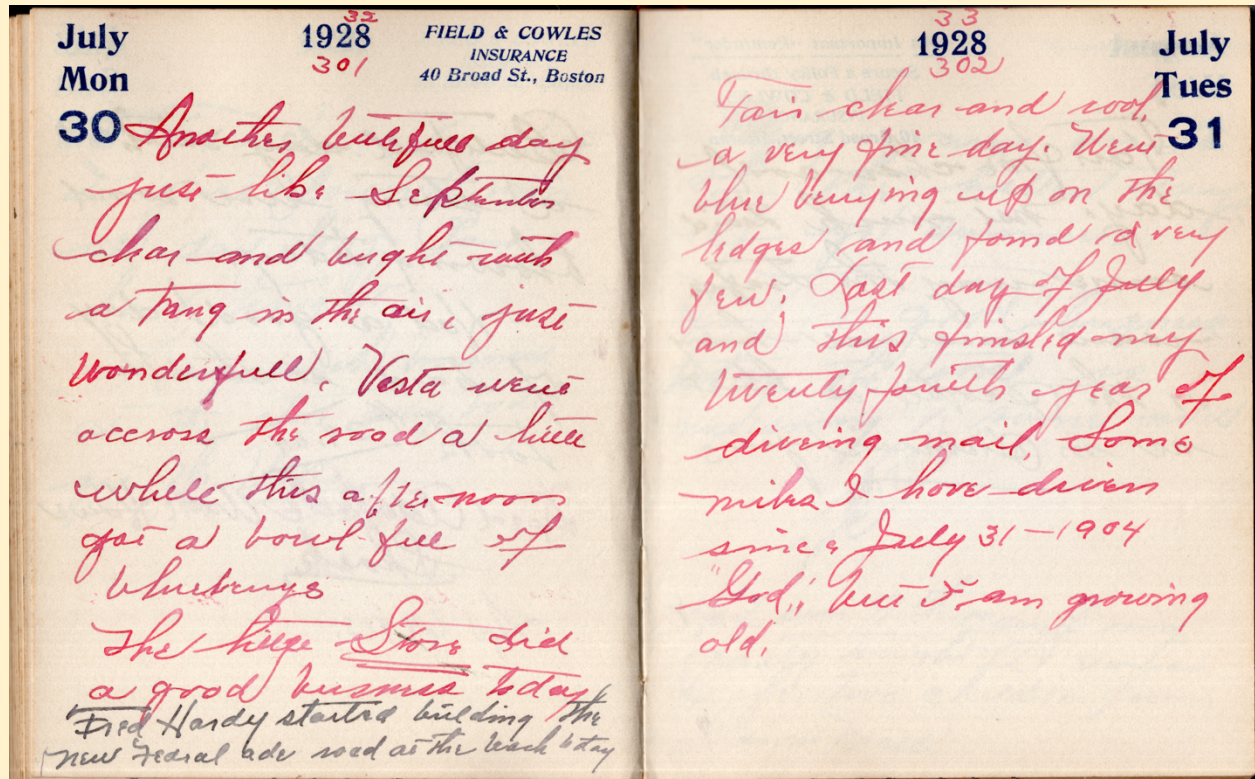 July
Mon
30
32
1928
301
FIELD & COWLES
INSURANCE
40 Broad St., Boston
Another butefull day
just like September
clear and bright with
a tang in the air, just
wonderfull. Vesta went
accross the road a little
while this afternoon
got a bowl full of
bluebenys
The little Store did
a good business today
Fred Hardy started building the
new Fedral ade road at the beach today
33
1928
302
July
Tues
31
Fair clear and cool
a very fine day. Went
blue berrying up on the
ledges and found a very
few. Last day of July
and this finished my
twenty fourth year of
driveing mail. Some
miles I have driven
since July 31-1904
"God," but I am growing
old.